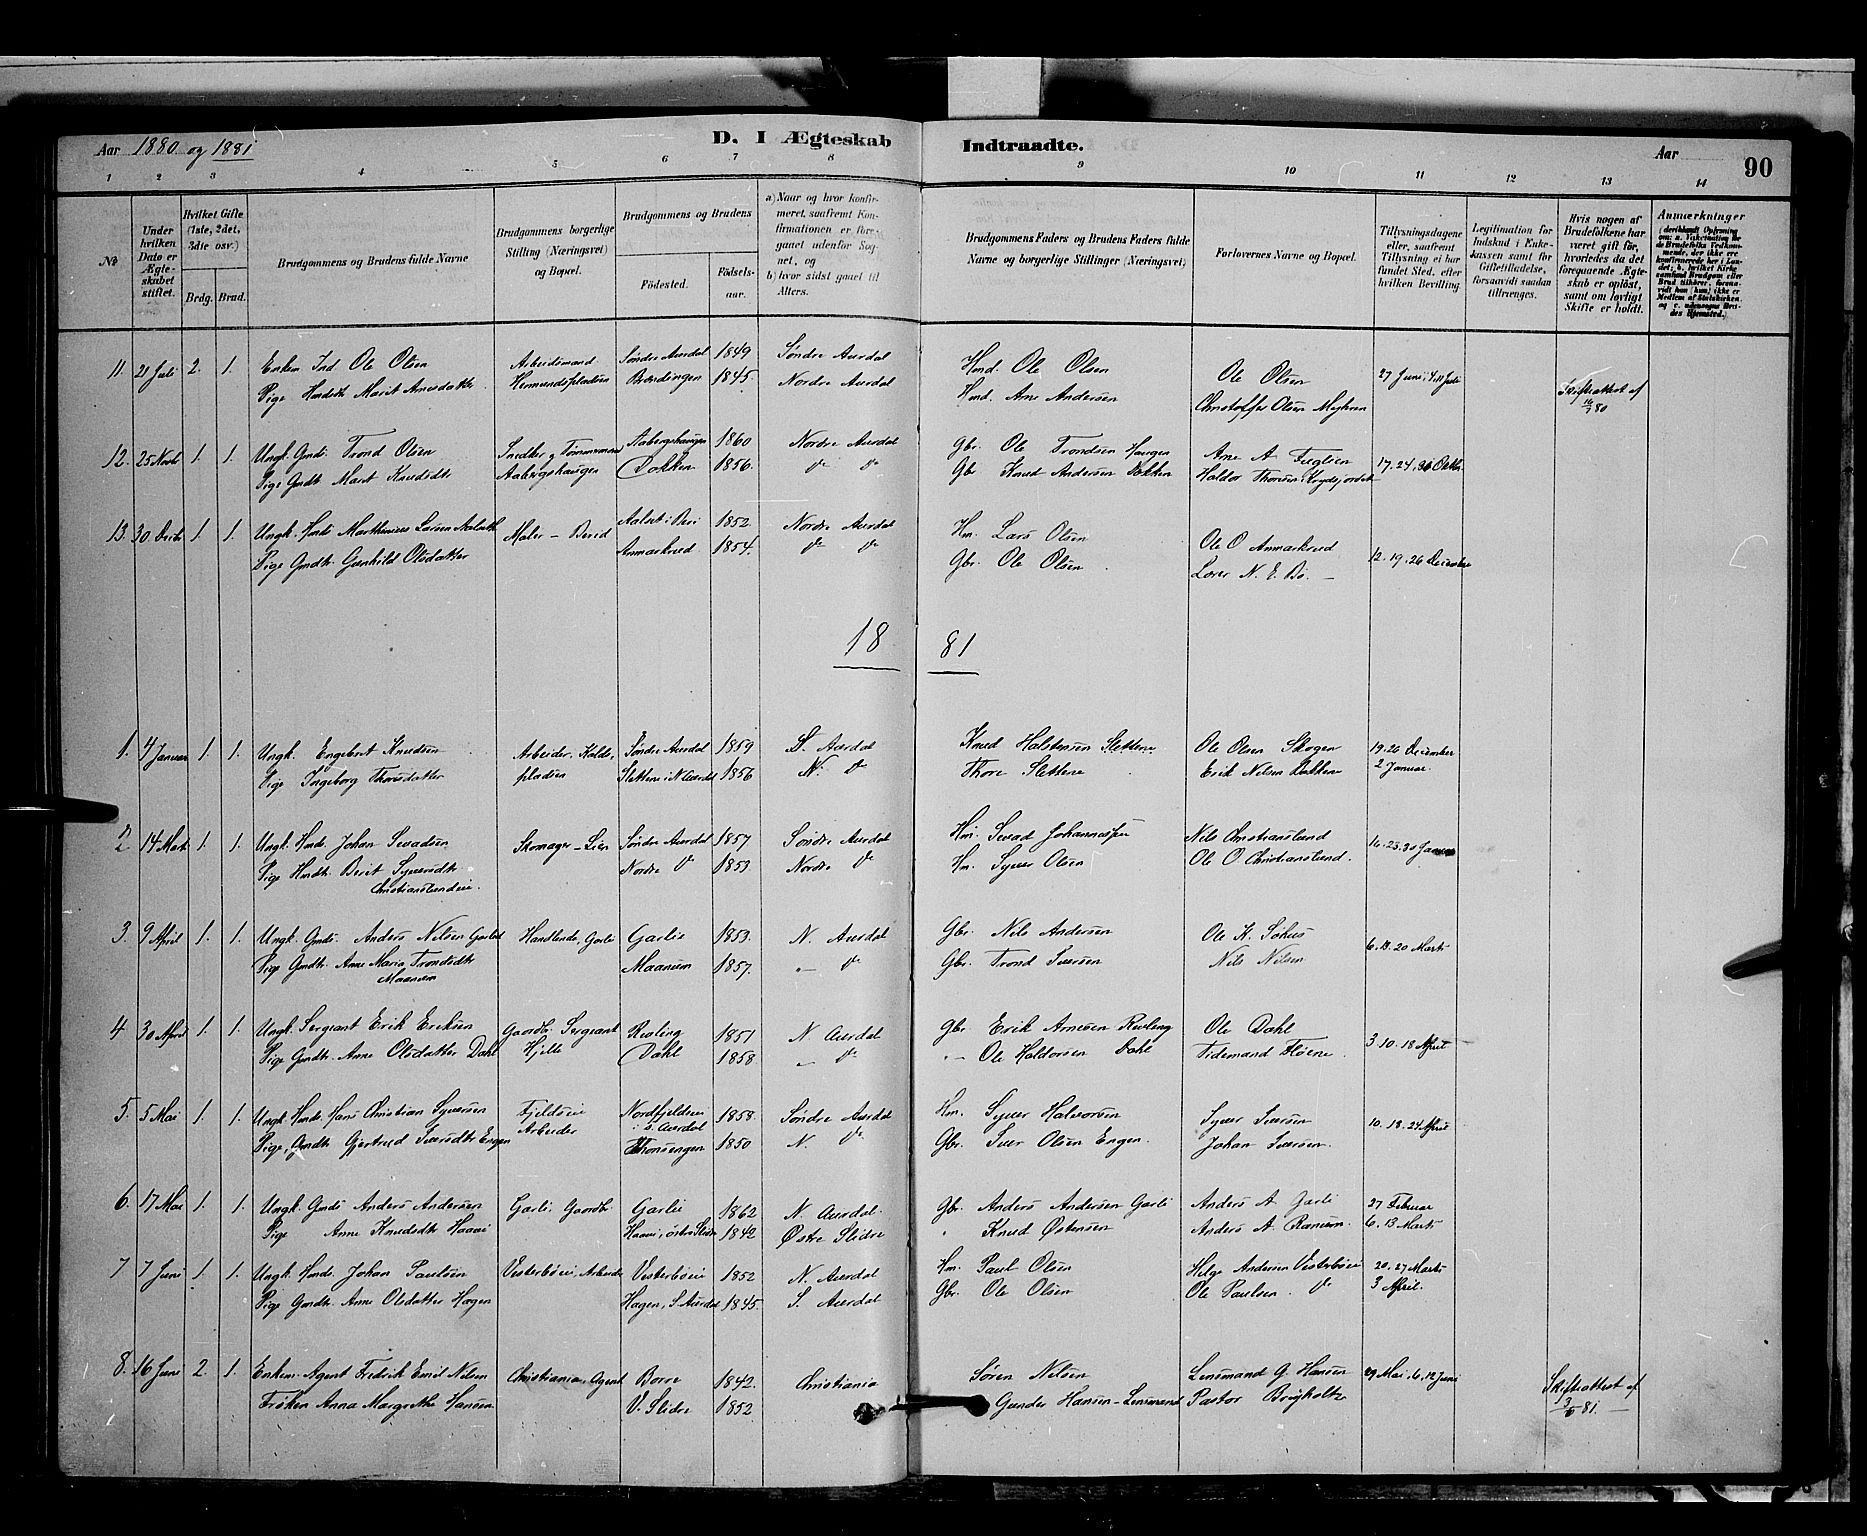 Aar 1880 og 1881
D. I Ægteskab Indtraadte.
Aar
90
1 2 3 4 5 6 7 8 9 10 11 12 13 14
No
Under hvilken Dato er Ægteskabet stiftet.
Hvilket Gifte (1ste, 2det, 3die osv.)
Brdg. Brud.
Brudgommens og Brudens fulde Navne
Brudgommens borgerlige Stilling (Næringsvei) og Bopæl.
Brudgommens og Brudens
Födested.
Födsels-aar.
a) Naar og hvor konfirmeret, saafremt Konfirmationen er foregaaet udenfor Sognet, og
b) hvor sidst gaaet til Alters.
Brudgommens Faders og Brudens Faders fulde Navne og borgerlige Stillinger (Næringsvei)
Forlovernes Navne og Bopæl.
Tillysningsdagene eller, saafremt Tillysning ei har fundet Sted, efter hvilken Bevilling
Legitimation for Indskud i Enkekassen samt for Giftetilladelse, forsaavidt saadan tiltrænges.
Hvis nogen af Brudefolkene har været gift för, hvorledes da det foregaaende Ægteskab er oplöst, samt om lovligt Skifte er holdt.
Anmærkninger
11. 21 Juli 2. 1. Enkem. Ind Ole Olsen Arbeidsmand Søndre Aurdal 1849 Søndre Aurdal Hmd. Ole Olsen Ole Olsen 27 Juni, 4. 11 Juli Skifteattest af
Pige Hmdtr Marit Arnesdatter Brændingen 1845. Nordre Aurdal Hmd. Arne Andersen Christoffer Olsen Myhren 16/7 80
12. 25 Novbr 1. 1. Ungk. Gmds. Trond Olsen Snedker og Tømmermand Aabergshaugen 1860 Nordre Aurdal Gbr. Ole Trondsen Haugen Arne A 17. 24. Oktbr.
Pige Gmdtr Marit Knudsdtr Aabergshaugen Dokken 1856. do do Gbr. Knud Andersen Dokken Haldor Thoresen
13. 30 Decbr 1. 1. Ungk. Hmds Marthinus Larsen Maler - 1852. Nordre Aurdal Hm. Lars Olsen Ole O Anmarkrud 12. 19. 26 December
Pige Gmdtr. Gunhild Olsdatter Anmarkrud 1854. do do Gbr. Ole Olsen Lærer N. E. Bø. -
18 81
1. 4 Januar 1. 1. Ungk. Engebret Knudsen Arbeider, Søndre Aurdal 1859 S. Aurdal Knud Halstensen Slettene Ole Olsen Skogen 19. 26 December
Pige Ingeborg Thoresdatter pladsen Slettene i N Aurdal 1856 N. do Thore Slettene Erik Nilsen Bakkene 2 Januar.
2 14 Mart 1. 1. Ungk. Hmds. Johan Sevadsen Skomager - Lien Søndre Aurdal 1857 Søndre Aurdal Hm. Sevad Johannesen Nils Christianslund 16. 23. 30 Januar
Pige Hmdtr. Berit Syversdtr Nordre do 1853 Nordre do Hm. Syver Olsen Ole O Christianslund.
Christianslundeie.
3. 9 April 1. 1. Ungk. Gmds. Anders Nilsen Garlid Handlende, Garlie Garlie 1853. N. Aurdal Gbr. Nils Andersen Ole K. 6. 13. 20 Marts
Pige Gmdtr. Anne Maria Trondsdtr Maanum 1857. - do Gbr. Trond Iversen Nils Nilsen
Maanum
4 30 April 1. 1. Ungk. Sergeant Erik Eriksen Gaardbr. Sergeant Røvling 1851 N Aurdal Gbr. Erik Arnesen Røvling Ole Dahl 3. 10. 18 April
Pige Gmdtr. Anne Olsdatter Dahl Hjelle Dahl 1858. - do - Ole Haldorsen Dahl Tidemand Fløene
5. 5 Mai 1. 1. Ungk Hmds. Hans Christian Syversen Fjeldseie Nordfjeldseie 1858. Søndre Aurdal Hm. Syver Halvorsen Syver Iversen 10. 18. 24 April
Arbeider i S. Aurdal
Pige, Gmdtr Gjertrud Iversdtr Engen Thronsengen 1850 N. do Gbr. Iver Olsen Engen. Johan Iversen.
6. 17 Mai 1. 1. Ungk. Gmds. Anders Andersen Garli. Gaardbr. Garlie 1862 N. Aurdal. Gbr. Anders Andersen Garli Anders A Garli 27 Februar
Pige Anne Knudsdtr Haavi Haavi, østre Slidre 1842 Østre Slidre Knud Østensen Anders A. Ranum. 6. 13 Marts
7 7 Juni 1. 1. Ungk. Hmds. Johan Paulsen Vesterbøeie, Arbeider Vesterbøeie 1852 N. Aurdal Hm. Paul Olsen Helge Andersen Vesterbøeie 20. 27 Marts
Pige Gmdtr. Anne Olsdatter Hagen Hagen, S. Aurdal 1845. S. Aurdal Gbr. Ole Olsen Ole Paulsen do 3 April.
8. 16 Juni 2. 1. Enkem. Agent Fredrik Emil Nilsen Christiania, Agent Borre 1842. Christiania Søren Nilsen Lensmand G. Hansen 29 Mai, 6, 12 Juni Skifteattest af
Frøken Anna Margrethe Hansen V. Slidre 1852 Gunder Hansen - Lensmand Pastor 81.